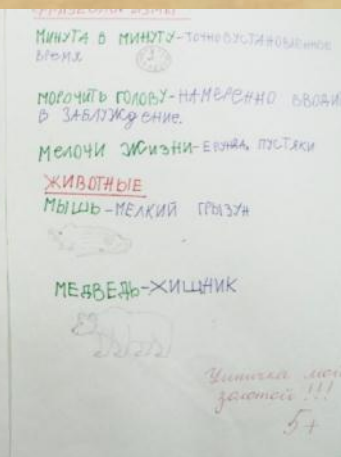 ФРАЗЕОЛОГИЗМЫ
МИНУТА В МИНУТУ-ТОЧНО УСТАНОВЛЕННОЕ
ВРЕМЯ
МОРОЧИТЬ ГОЛОВУ-НАМЕРЕННО ВВОДИ
В ЗАБЛУЖДЕНИЕ.
МЕЛОЧИ ЖИЗНИ-ЕРУНДА, ПУСТЯКИ
ЖИВОТНЫЕ
МЫШЬ-МЕЛКИЙ ГРЫЗУН
МЕДВЕДЬ-ХИЩНИК
Умничка моя
золотой!!!
5+